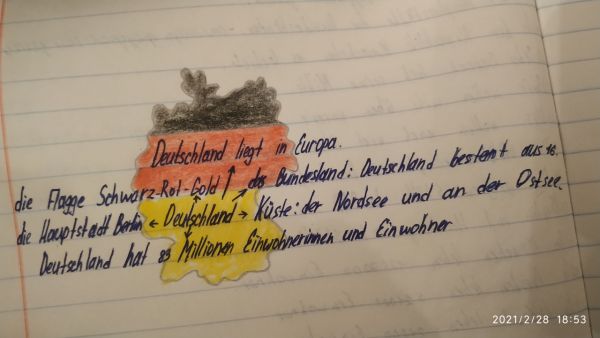 Deutschland liegt in Europa.
die Flagge Schwarz-Rot-Gold das Bundesland: Deutschland bestemt aus 16.
die Hauptstadt Berlin ← Deutschland → Küste: der Nordsee und an der Ostsee.
Deutschland hat 83 Millionen Einwohnerinnen und Einwohner
2021/2/28 18:53